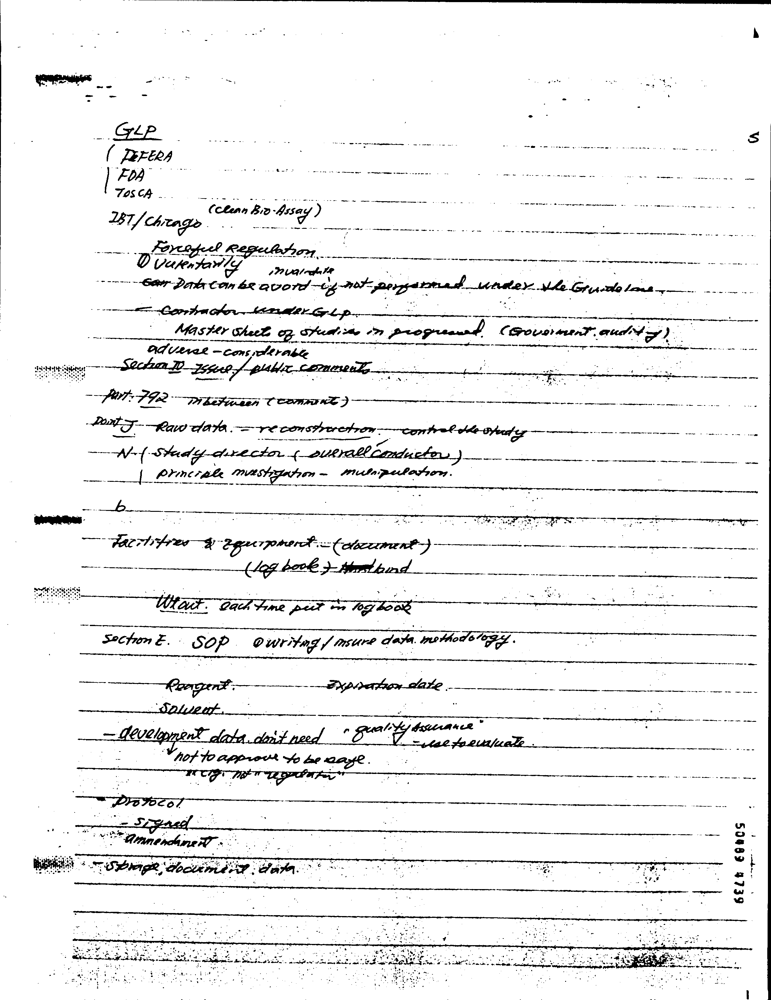 GLP
FDA
TOSCA
IBT/Chicago (Clean Bio-Assay)
Forceful Regulation
invalidate
Data can be avoid if not performed under the Guideline
- Contractor under GLP.
Master sheet of studies in progressed. (Government audit)
adverse - considerable
Section III Issue / public comments
part. 792 inbetween (comment)
Point J Raw data. = reconstruction control the study
N- ( Study director ( overall conductor )
principle investigation - munipulation.
b
Facilities & Equipment - (document)
(log book) bind
each time put in log book
Section E. SOP writing / insure data methodology.
Reagent. Expiration date
Solvent.
- development data don't need "quality Assurance"
- use to evaluate
not to approve to be safe.
- Protocol
- Signed
ammendment
- Storage, document, data.
50489 4739
S